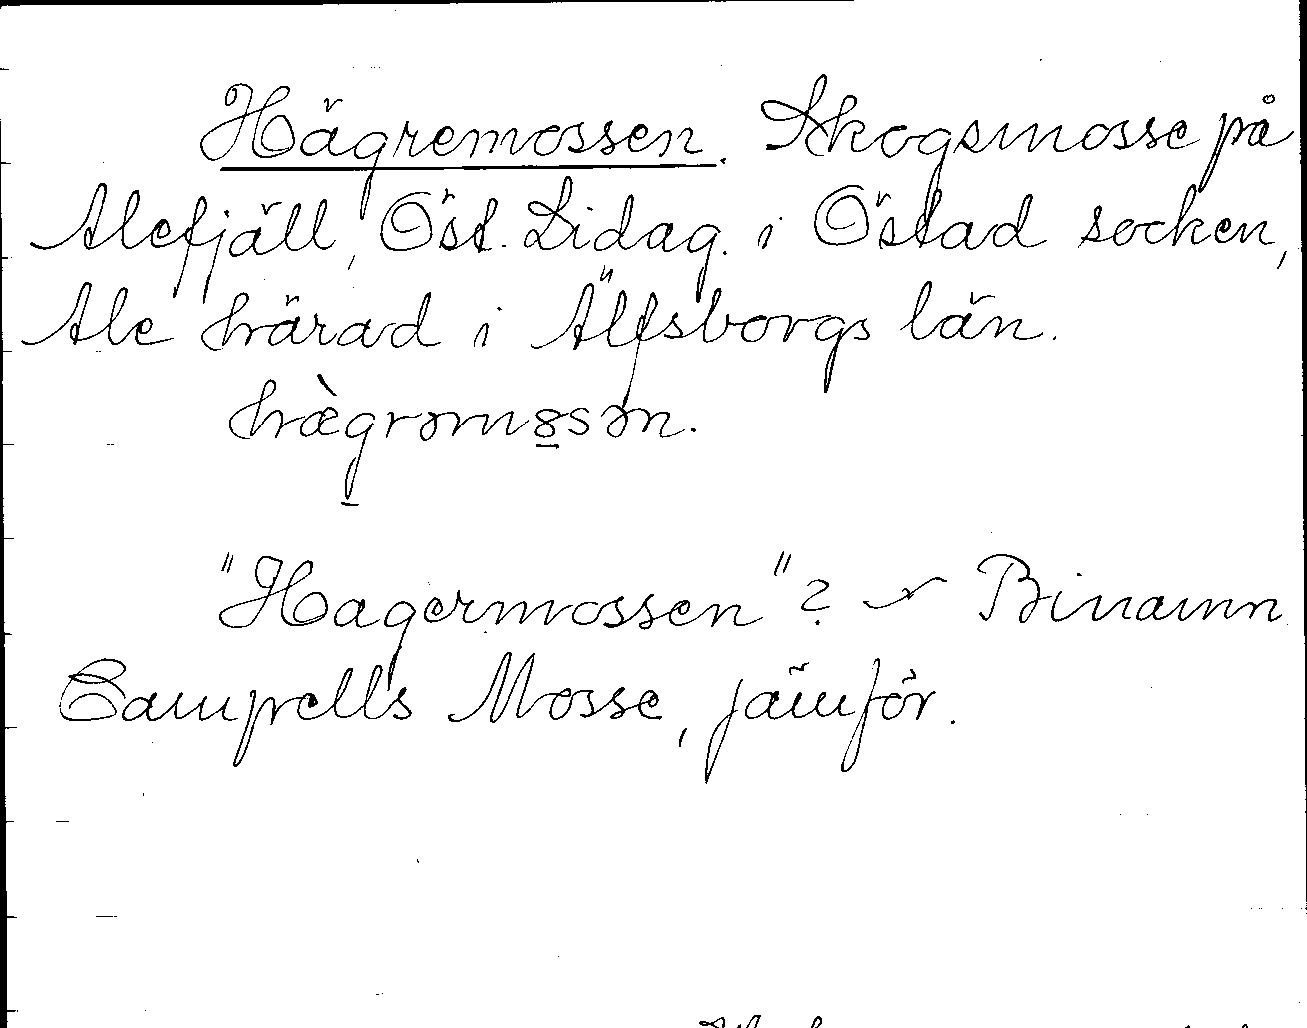 Hägremossen. Skogsmosse på
Alefjäll, Öst. Lidag. i Östad socken,
Ale härad i Älfsborgs län.
hæ̀grəm8sən.
"Hagermossen"? Binamn
Campells Mosse, jämför.